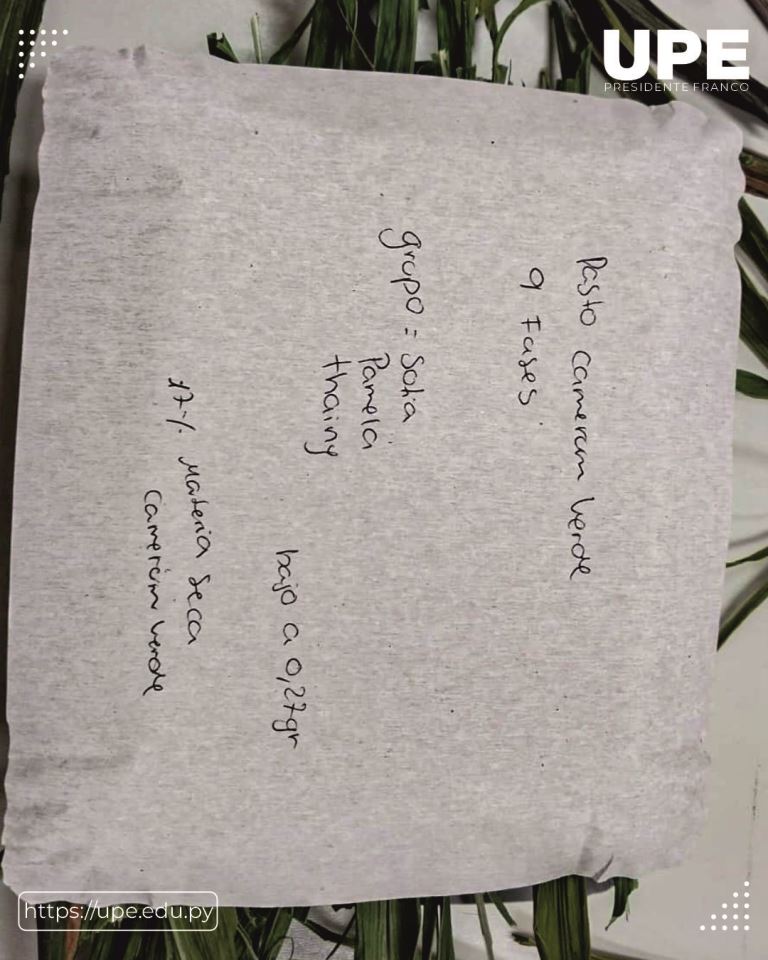 UPE
PRESIDENTE FRANCO
Pasto Camerum Verde
9 Fases
grupo = Sofia
Pamela
thainy
bajo a 0,27gr
17% Materia Seca
Camerúm verde
https://upe.edu.py